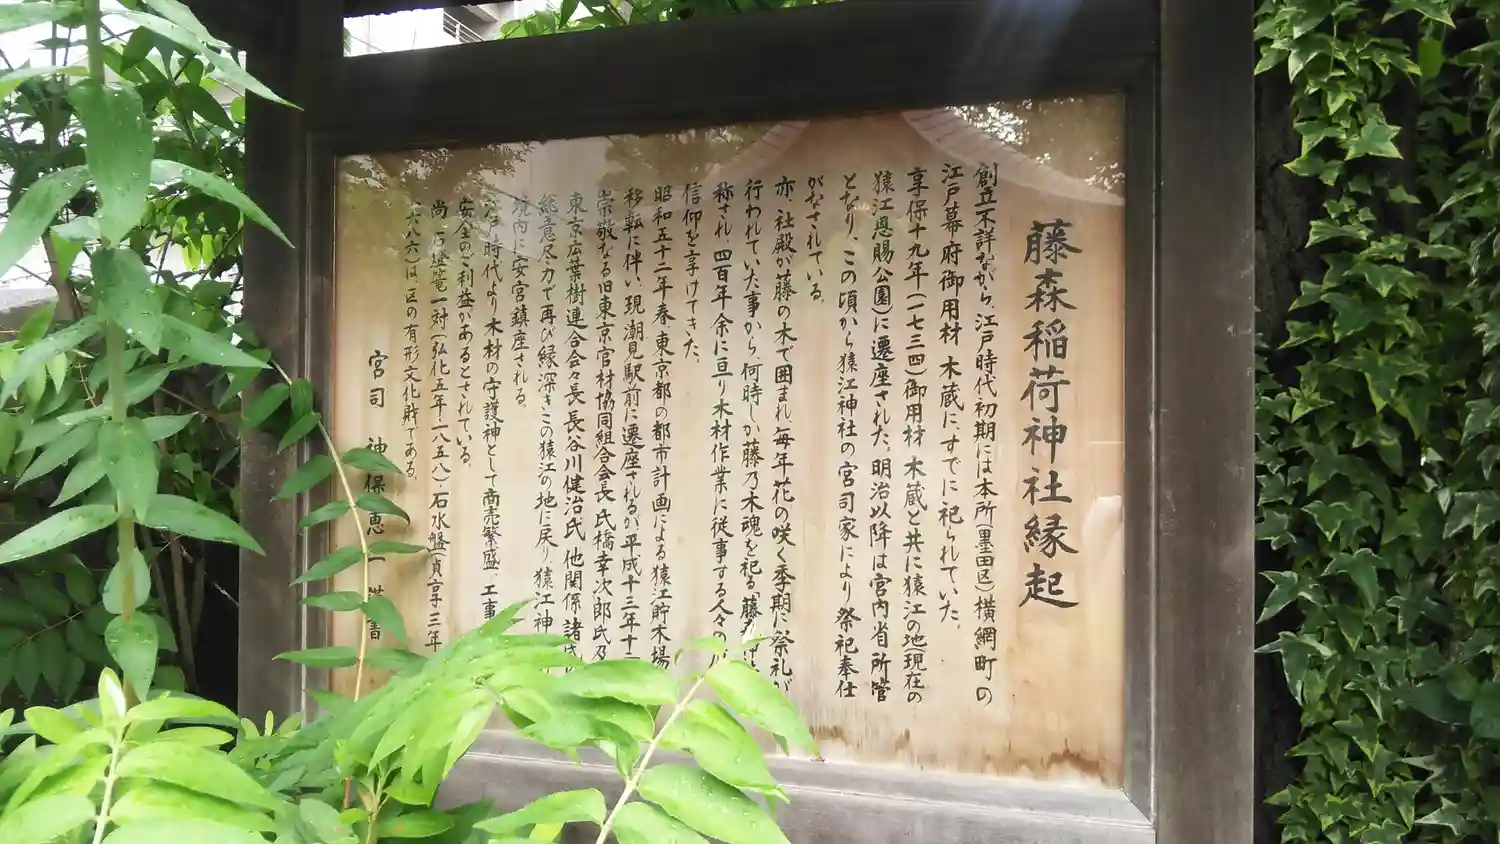 藤森稲荷神社縁起
創立不詳ながら、江戸時代初期には本所(墨田区)横網町の
江戸幕府御用材 木蔵にすでに祀られていた。
享保十九年(一七三四)御用材 木蔵と共に猿江の地(現在の
猿江恩賜公園)に遷座された。明治以降は宮内省所管
となり、この頃から猿江神社の宮司家により 祭祀奉仕
がなされている。
亦、社殿が藤の木で囲まれ、毎年花の咲く季期に祭礼が
行われていた事から、何時しか藤乃木魂を祀る「藤
称され、四百年余に亘り木材作業に従事する人々の
信仰を享けてきた。
昭和五十二年春東京都の都市計画による猿江貯木場
移転に伴い、現潮見駅前に遷座されるが平成十三年十
崇敬なる旧東京官材協同組合会長 氏橋幸次郎氏及
東京広葉樹連合会々長長谷川健治氏 他関係諸
総意尽力で再び縁深きこの猿江の地に戻り猿江神
境内に安宮鎮座される。
江戸時代より木材の守護神として商売繁盛、工事
安全のご利益があるとされている。
尚、石燈篭一対(弘化五年一八五八)石水盤(貞享三年
一六八六)は区の有形文化財である。
宮司 神保恵一 書